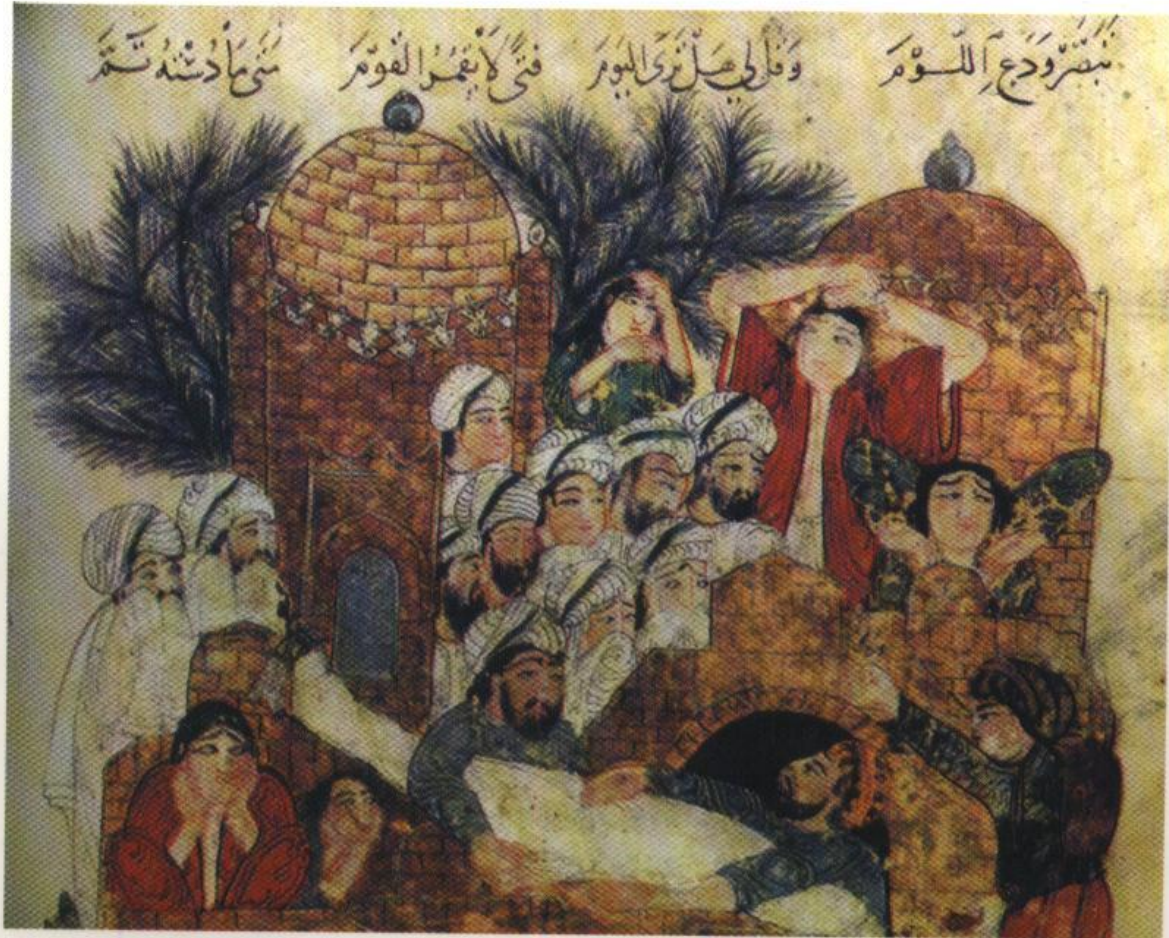 تبصر ودع اللوم وقل لي هل ترى اليوم فتى لا يقمر القوم متى ما دسته تم